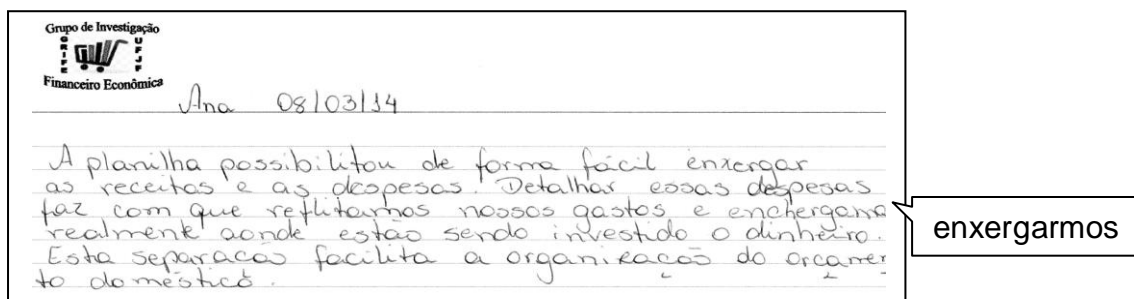 Grupo de Investigação
GRIFE UFJF
Financeiro Econômica
Ana 08/03/14
A planilha possibilitou de forma fácil enxergar
as receitas e as despesas. Detalhar essas despesas
faz com que reflitamos nossos gastos e enchergamo
realmente aonde estão sendo investido o dinheiro.
Esta separacão facilita a organizacão do orcamen
to doméstico.
enxergarmos